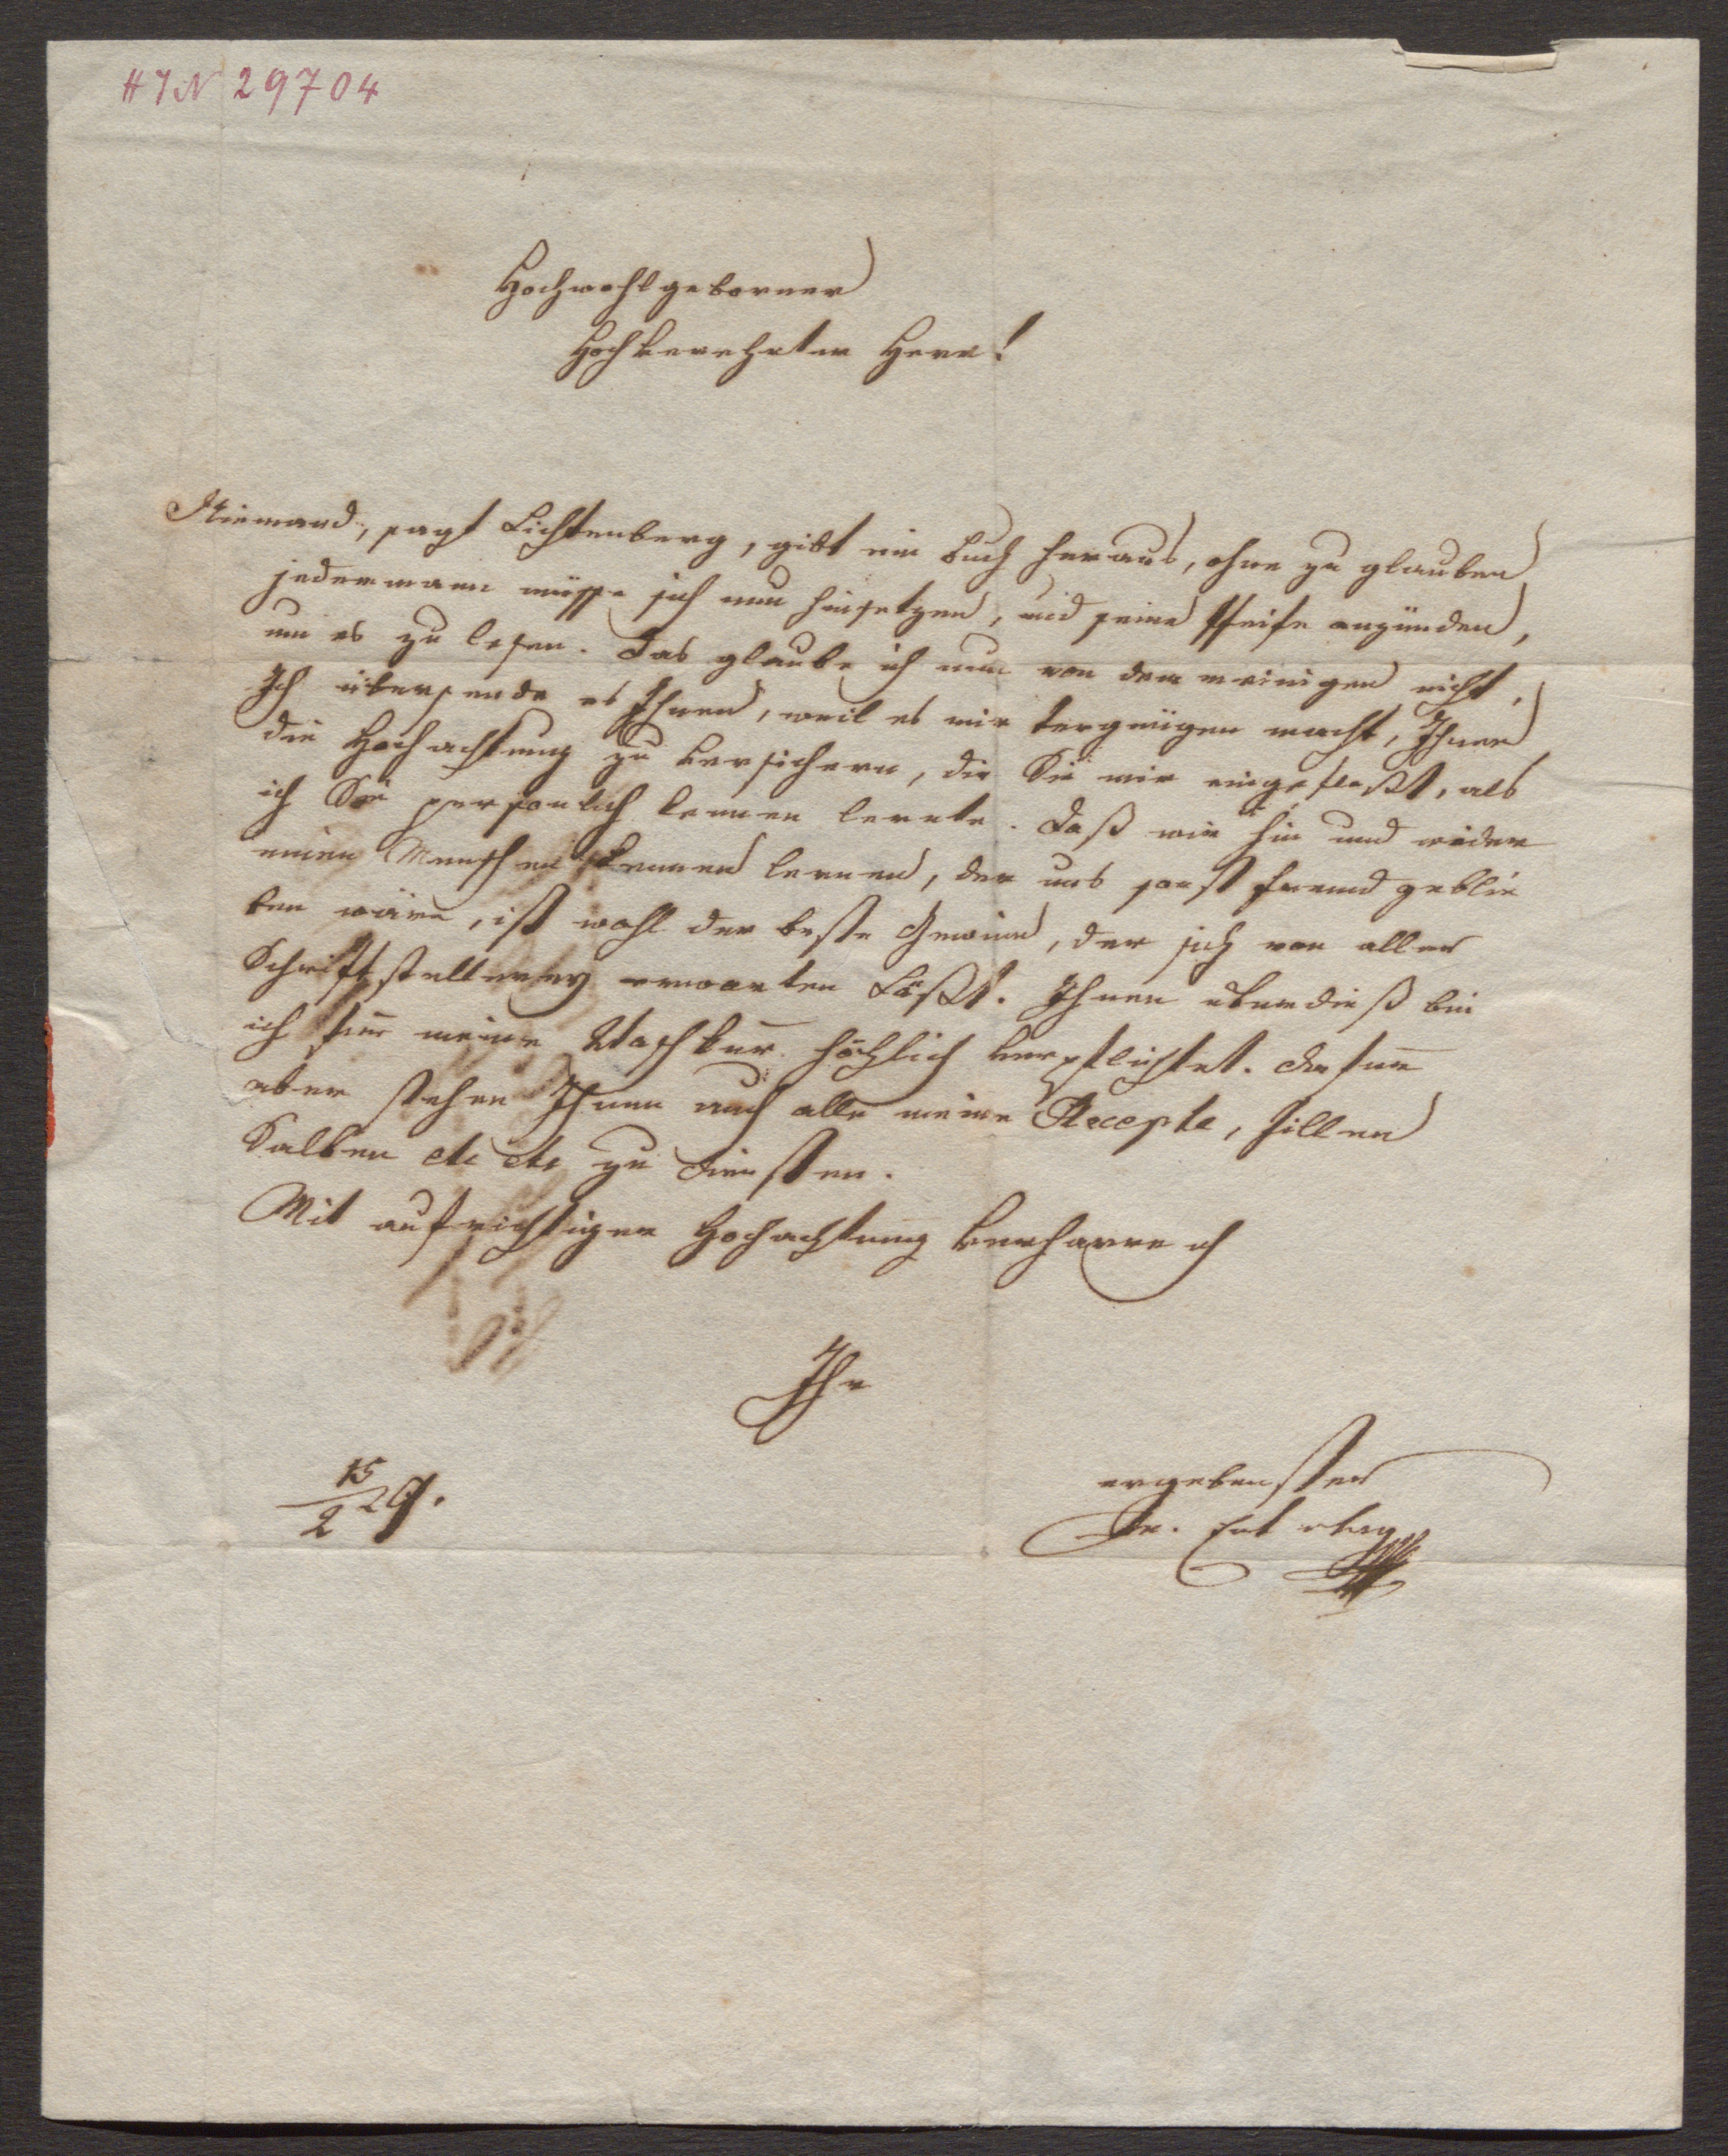 HIN 29704
Hochwohlgeborner
Hochverehrter Herr!
Niemand, sagt Lichtenberg, gibt ein Buch heraus, ohne zu glauben
jedermann müsse sich nun hinsetzen, und seine Pfeife anzünden,
um es zu lesen. Das glaube ich nun von dem meinigen nicht.
Ich übersende es Ihnen, weil es mir Vergnügen macht, Ihnen
die Hochachtung zu versichern, die Sie mir eingeflößt, als
ich Sie persönlich kennen lernte. Daß wir hin und wieder
einen Menschen kennen lernen, der uns sonst fremd geblie
ben wäre, ist wohl der beste Gewinn, der sich von aller
Schriftstellerey erwarten läßt. Ihnen überdieß bin
ich für meine höchlich verpflichtet. Dafür
aber stehen Ihnen auch alle meine Recepte, Pillen
Salben etc etc zu Diensten.
Mit aufrichtiger Hochachtung verharre ich
Ihr
15/2 29.
ergebenster